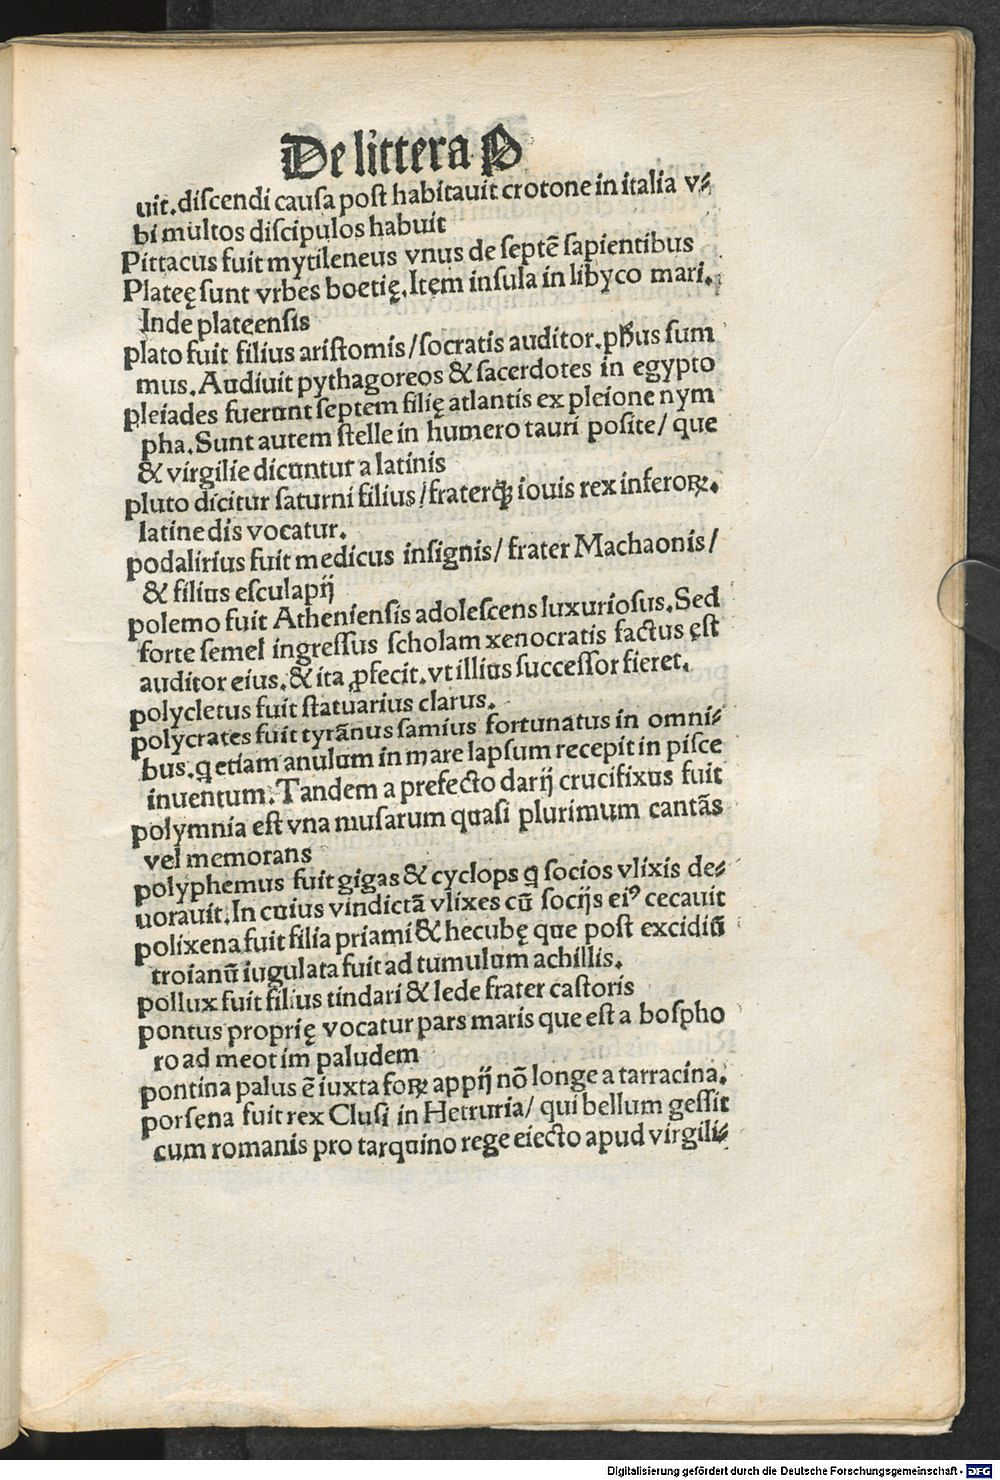 De littera P
uit.discendi causa post habitauit crotone in italia v⸗
bi multos discipulos habuit
Pittacus fuit mytileneus vnus de septē sapientibus
Plateę sunt vrbes boetię.Item insula in libyco mari.
Inde plateensis
plato fuit filius aristomis/socratis auditor.pħus sum
mus.Audiuit pythagoreos & sacerdotes in egypto
pleiades fuerunt septem filię atlantis ex pleione nym
pha.Sunt autem stelle in humero tauri posite/ que
& virgilie dicuntur a latinis
pluto dicitur saturni filius/fraterqꝫ iouis rex inferoꝝ.
latine dis vocatur.
podalirius fuit medicus insignis/ frater Machaonis/
& filius esculapij
polemo fuit Atheniensis adolescens luxuriosus.Sed
forte semel ingressus scholam xenocratis factus ęst
auditor eius.& ita ꝓfecit.vt illius successor fieret.
polycletus fuit statuarius clarus.
polycrates fuit tyrānus samius fortunatus in omni⸗
bus.q etiam anulum in mare lapsum recepit in pisce
inuentum.Tandem a prefecto darij crucifixus fuit
polymnia est vna musarum quasi plurimum cantās
vel memorans
polyphemus fuit gigas & cyclops q socios vlixis de⸗
uorauit.In cuius vindictā vlixes cū socijs eiꝰ cecauit
polixena fuit filia priami & hecubę que post excidiū
troianū iugulata fuit ad tumulum achillis.
pollux fuit filius tindari & lede frater castoris
pontus proprię vocatur pars maris que est a bospho
ro ad meotim paludem
pontina palus ē iuxta foꝝ appij nō longe a tarracina.
porsena fuit rex Clusi in Hetruria/ qui bellum gessit
cum romanis pro tarquino rege eiecto apud virgili⸗
Digitalisierung gefördert durch die Deutsche Forschungsgemeinschaft - DFG